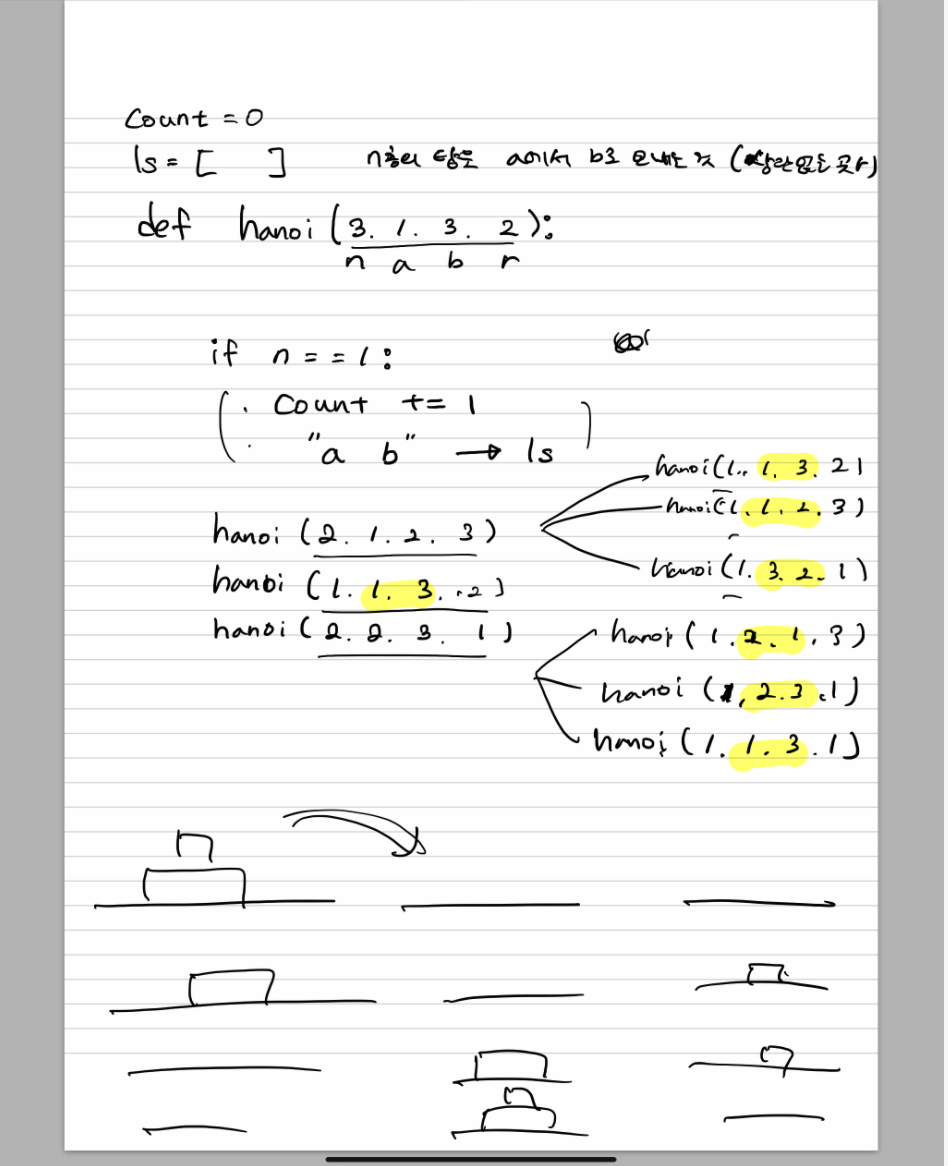 count = 0
ls = [ ]
n층의 탑을 a에서 b로 보내는 것 (상관없는 곳 r)
def hanoi (3. 1. 3. 2):
n a b r
if n == 1:
count += 1
"a b" → ls
hanoi (2. 1. 2. 3)
hanoi (1. 1. 3. 2)
hanoi (2. 2. 3. 1)
hanoi (1. 1. 3. 2)
hanoi (1. 1. 2. 3)
hanoi (1. 3. 2. 1)
hanoi (1. 2. 1. 3)
hanoi (1, 2. 3. 1)
hanoi (1. 1. 3. 1)